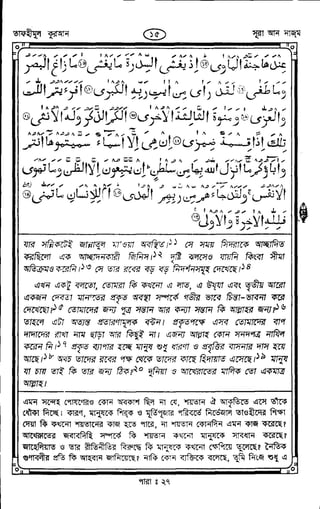 তাফহীমুল কুরআন
১৫
সূরা আন নাজম
عِنْدَهَا جَنَّةُ الْمَاْوٰى ⑮ اِذْ يَغْشَى السِّدْرَةَ مَا يَغْشٰى ⑯ مَا زَاغَ الْبَصَرُ
وَمَا طَغٰى ⑰ لَقَدْ رَاٰى مِنْ اٰيٰتِ رَبِّهِ الْكُبْرٰى ⑱ اَفَرَءَيْتُمُ اللّٰتَ
وَالْعُزّٰى ⑲ وَمَنٰوةَ الثَّالِثَةَ الْاُخْرٰى ⑳ اَلَكُمُ الذَّكَرُ وَلَهُ الْاُنْثٰى ㉑
تِلْكَ اِذًا قِسْمَةٌ ضِيْزٰى ㉒ اِنْ هِىَ اِلَّا اَسْمَاءٌ سَمَّيْتُمُوْهَا اَنْتُمْ
وَاٰبَاؤُكُمْ مَّا اَنْزَلَ اللّٰهُ بِهَا مِنْ سُلْطٰنٍ اِنْ يَّتَّبِعُوْنَ اِلَّا الظَّنَّ وَمَا تَهْوَى
الْاَنْفُسُ وَلَقَدْ جَاءَهُمْ مِّنْ رَّبِّهِمُ الْهُدٰى ㉓ اَمْ لِلْاِنْسَانِ مَا تَمَنّٰى ㉔
فَلِلّٰهِ الْاٰخِرَةُ وَالْاُوْلٰى ㉕
যার সন্নিকটেই জান্নাতুল মা'ওয়া অবস্থিত।১১ সে সময় সিদরাকে আচ্ছাদিত
করছিলো এক আচ্ছাদনকারী জিনিস।১২ দৃষ্টি ঝলসেও যায়নি কিংবা সীমা
অতিক্রমও করেনি।১৩ সে তার রবের বড় বড় নিদর্শনসমূহ দেখেছে।১৪
এখন একটু বলতো, তোমরা কি কখনো এ লাত, এ উযযা এবং তৃতীয় আরো
একজন দেবতা মানাতের প্রকৃত অবস্থা সম্পর্কে গভীর ভাবে চিন্তা-ভাবনা করে
দেখেছো?১৫ তোমাদের জন্য পুত্র সন্তান আর কন্যা সন্তান কি আল্লাহর জন্য?১৬
তাহলে এটা অত্যন্ত প্রতারণামূলক বন্টন। প্রকৃতপক্ষে এসব তোমাদের বাপ
দাদাদের রাখা নাম ছাড়া আর কিছুই না। এজন্য আল্লাহ কোন সনদপত্র নাযিল
করেন নি।১৭ প্রকৃত ব্যাপার হচ্ছে মানুষ শুধু ধারণা ও প্রবৃত্তির বাসনার দাস হয়ে
আছে।১৮ অথচ তাদের রবের পক্ষ থেকে তাদের কাছে হিদায়াত এসেছে।১৯ মানুষ
যা চায় তাই কি তার জন্য ঠিক?২০ দুনিয়া ও আখেরাতের মালিক তো একমাত্র
আল্লাহ।
এমন সন্দেহ পোষণেরও কোন অবকাশ ছিল না যে, শয়তান ঐ আকৃতিতে এসে তাঁকে
ধোঁকা দিচ্ছে। কারণ, মানুষকে শিরক ও মূর্তিপূজার পরিবর্তে নির্ভেজাল তাওহীদের শিক্ষা
দেয়া কি কখনো শয়তানের কাজ হতে পারে, না শয়তান কোনদিন এমন কাজ করেছে?
আখেরাতের জবাবদিহি সম্পর্কে কি শয়তান কখনো মানুষকে সাবধান করেছে?
জাহেলিয়াত ও তার রীতিনীতির বিরুদ্ধে কি মানুষকে কখনো ক্ষেপিয়ে তুলেছে? নৈতিক
গুণাবলীর প্রতি কি আহবান জানিয়েছে? নাকি কোন ব্যক্তিকে বলেছে, তুমি নিজে শুধু এ
পারা : ২৭